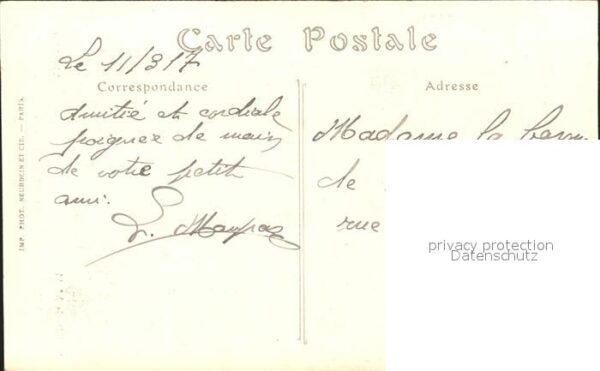 Carte Postale
Le 11/3 17
Correspondance
Adresse
Amitié et cordiale
poignée de main
de votre petit
ami.
Madame la
de
rue
IMP. PHOT. NEURDEIN ET CIE. — PARIS.
privacy protection
Datenschutz